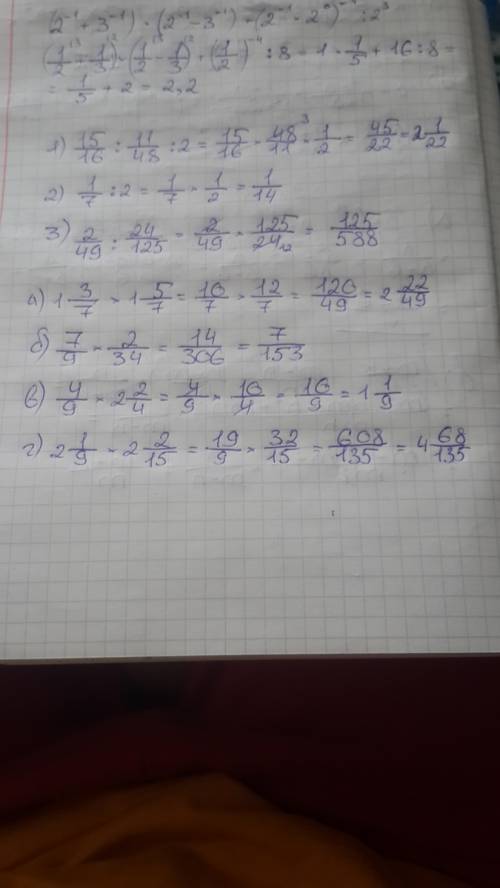 (2⁻¹ + 3⁻¹) · (2⁻¹ - 3⁻¹) + (2⁻¹ · 2⁰)⁻⁴ : 2³
: 8 = 1 · 1/5 + 16 : 8 =
= 1/5 + 2 = 2,2
1) 15/16 : 11/48 : 2 = 15/16 · 48³/11 · 1/2 = 45/22 = 2 1/22
2) 1/7 : 2 = 1/7 · 1/2 = 1/14
3) 2/49 : 24/125 = 2/49 · 125/24₁₂ = 125/588
а) 1 3/7 · 1 5/7 = 10/7 · 12/7 = 120/49 = 2 22/49
б) 7/9 · 2/34 = 14/306 = 7/153
в) 4/9 · 2 2/4 = 4/9 · 10/4 = 10/9 = 1 1/9
г) 2 1/9 · 2 2/15 = 19/9 · 32/15 = 608/135 = 4 68/135